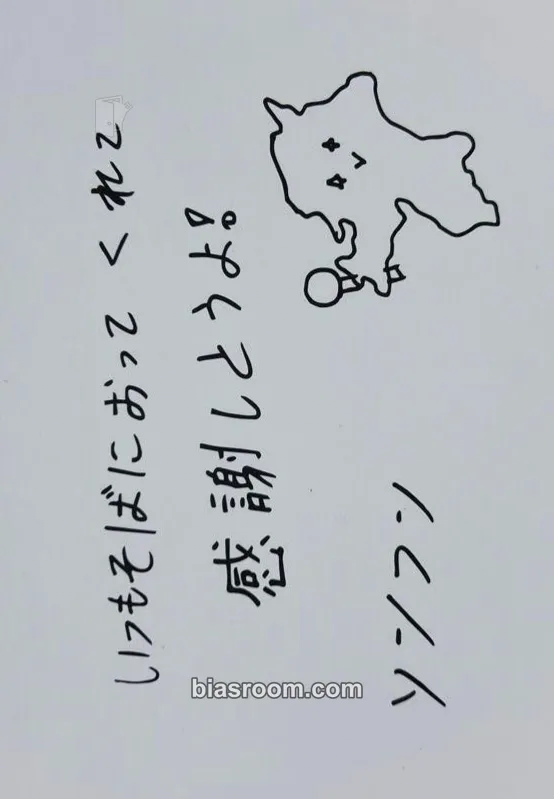 いつもそばにおってくれて
感謝しとうよ!!
ソンフン
biasroom.com